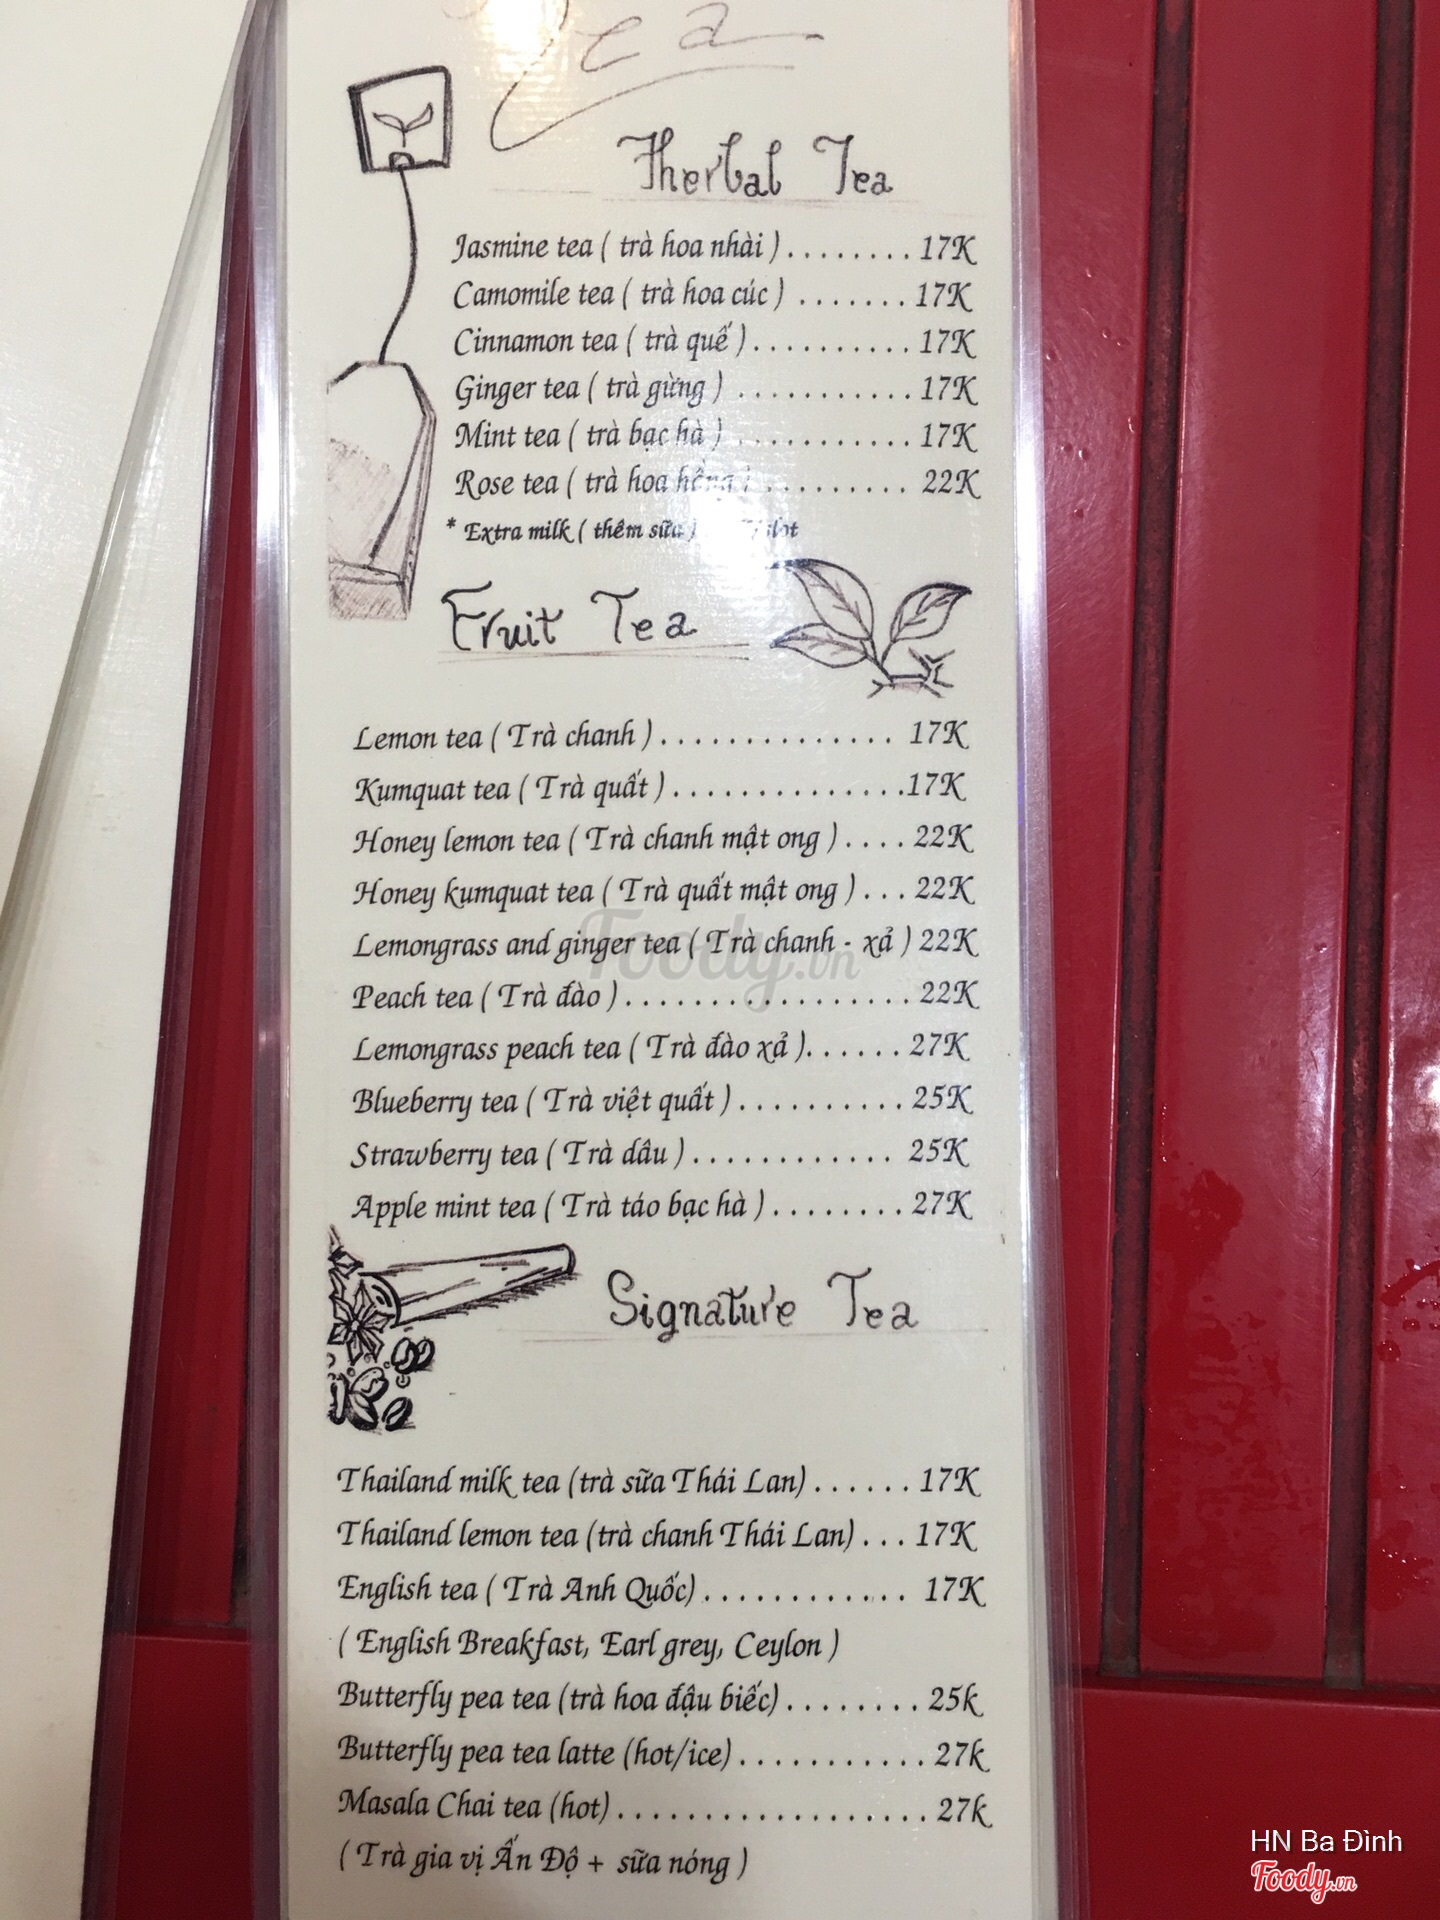 Tea
Therbal Tea
Jasmine tea ( trà hoa nhài ) ........ 17K
Camomile tea ( trà hoa cúc ) ....... 17K
Cinnamon tea ( trà quế ) .......... 17K
Ginger tea ( trà gừng ) ........... 17K
Mint tea ( trà bạc hà ) ........... 17K
Rose tea ( trà hoa hồng ) ......... 22K
* Extra milk ( thêm sữa )
Fruit Tea
Lemon tea ( Trà chanh ) .............. 17K
Kumquat tea ( Trà quất ) ..............17K
Honey lemon tea ( Trà chanh mật ong ) .... 22K
Honey kumquat tea ( Trà quất mật ong ) ... 22K
Lemongrass and ginger tea ( Trà chanh - xả ) 22K
Peach tea ( Trà đào ) ................. 22K
Lemongrass peach tea ( Trà đào xả ). ...... 27K
Blueberry tea ( Trà việt quất ) .......... 25K
Strawberry tea ( Trà dâu ) ............ 25K
Apple mint tea ( Trà táo bạc hà ) ........ 27K
Signature Tea
Thailand milk tea (trà sữa Thái Lan) ...... 17K
Thailand lemon tea (trà chanh Thái Lan) ... 17K
English tea ( Trà Anh Quốc) ............ 17K
( English Breakfast, Earl grey, Ceylon )
Butterfly pea tea (trà hoa đậu biếc) ........ 25k
Butterfly pea tea latte (hot/ice) ........... 27k
Masala Chai tea (hot) .................. 27k
( Trà gia vị Ấn Độ + sữa nóng )
Foody.vn
HN Ba Đình
Foody.vn